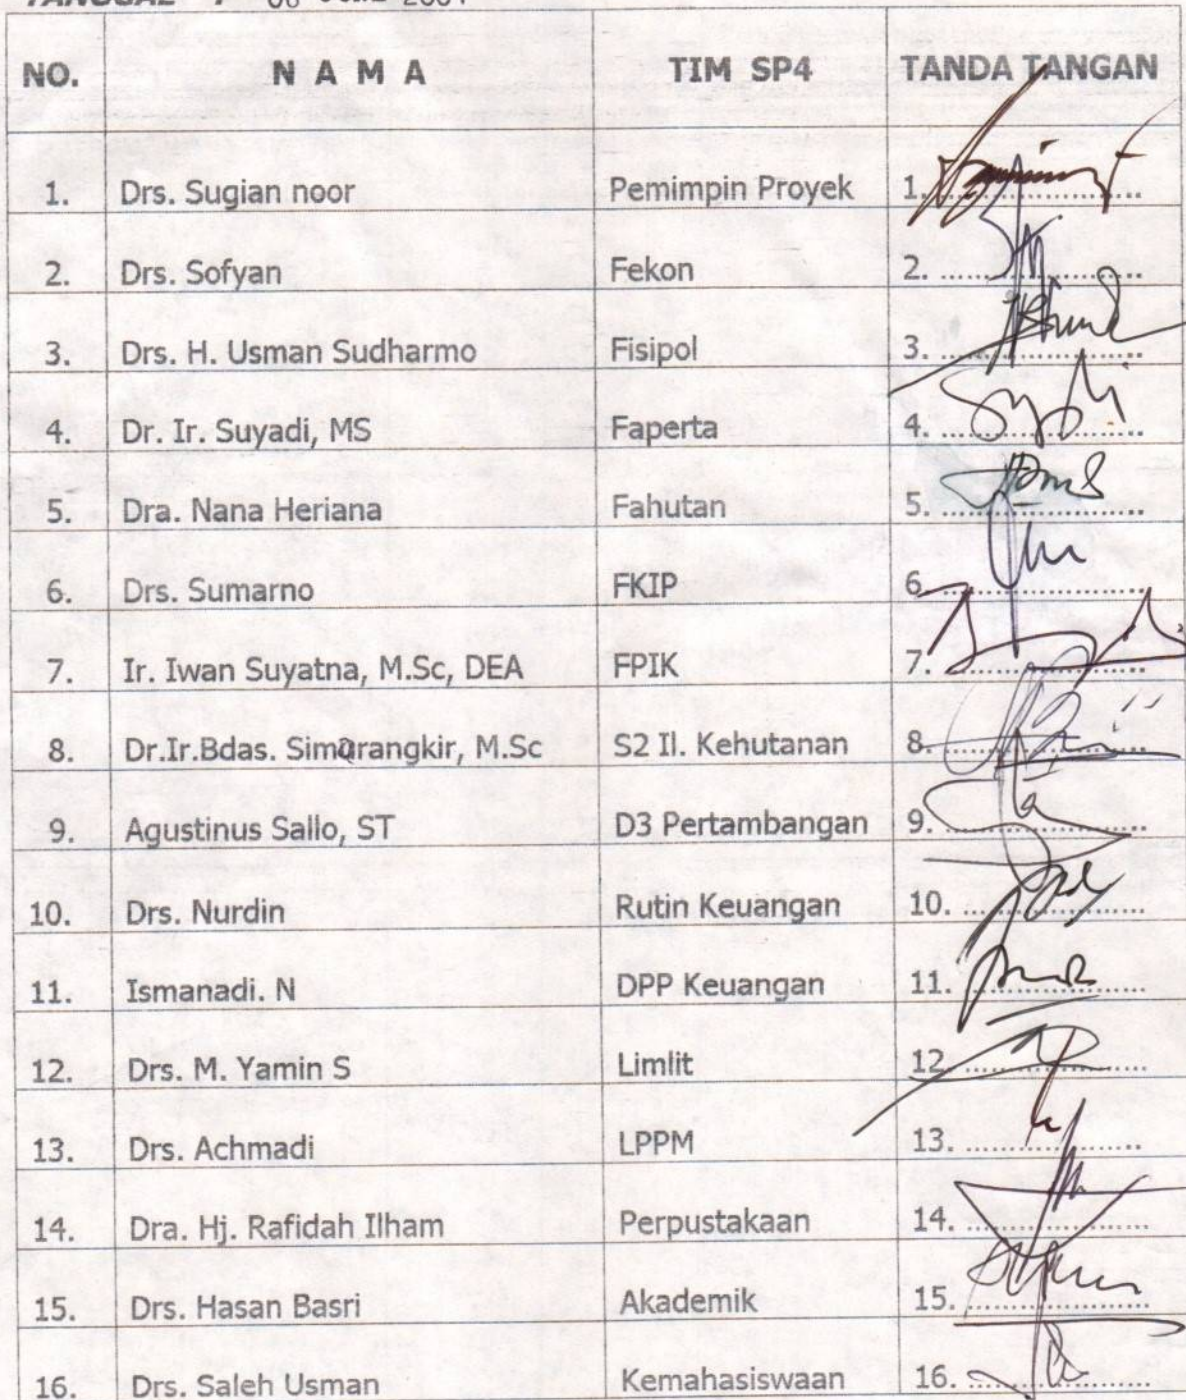 NO. N A M A TIM SP4 TANDA TANGAN
1. Drs. Sugian noor Pemimpin Proyek 1. ....................
2. Drs. Sofyan Fekon 2. ....................
3. Drs. H. Usman Sudharmo Fisipol 3. ....................
4. Dr. Ir. Suyadi, MS Faperta 4. ....................
5. Dra. Nana Heriana Fahutan 5. ....................
6. Drs. Sumarno FKIP 6. ....................
7. Ir. Iwan Suyatna, M.Sc, DEA FPIK 7. ....................
8. Dr.Ir.Bdas. Simarangkir, M.Sc S2 Il. Kehutanan 8. ....................
9. Agustinus Sallo, ST D3 Pertambangan 9. ....................
10. Drs. Nurdin Rutin Keuangan 10. ....................
11. Ismanadi. N DPP Keuangan 11. ....................
12. Drs. M. Yamin S Limlit 12. ....................
13. Drs. Achmadi LPPM 13. ....................
14. Dra. Hj. Rafidah Ilham Perpustakaan 14. ....................
15. Drs. Hasan Basri Akademik 15. ....................
16. Drs. Saleh Usman Kemahasiswaan 16. ....................